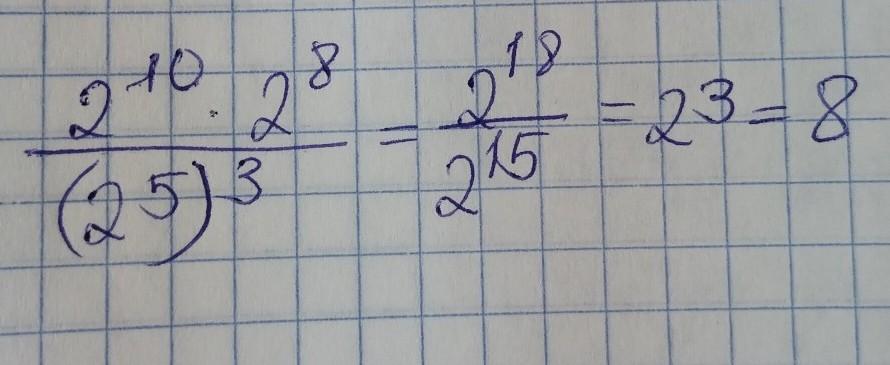 \frac{2^{10} \cdot 2^8}{(2^5)^3} = \frac{2^{18}}{2^{15}} = 2^3 = 8